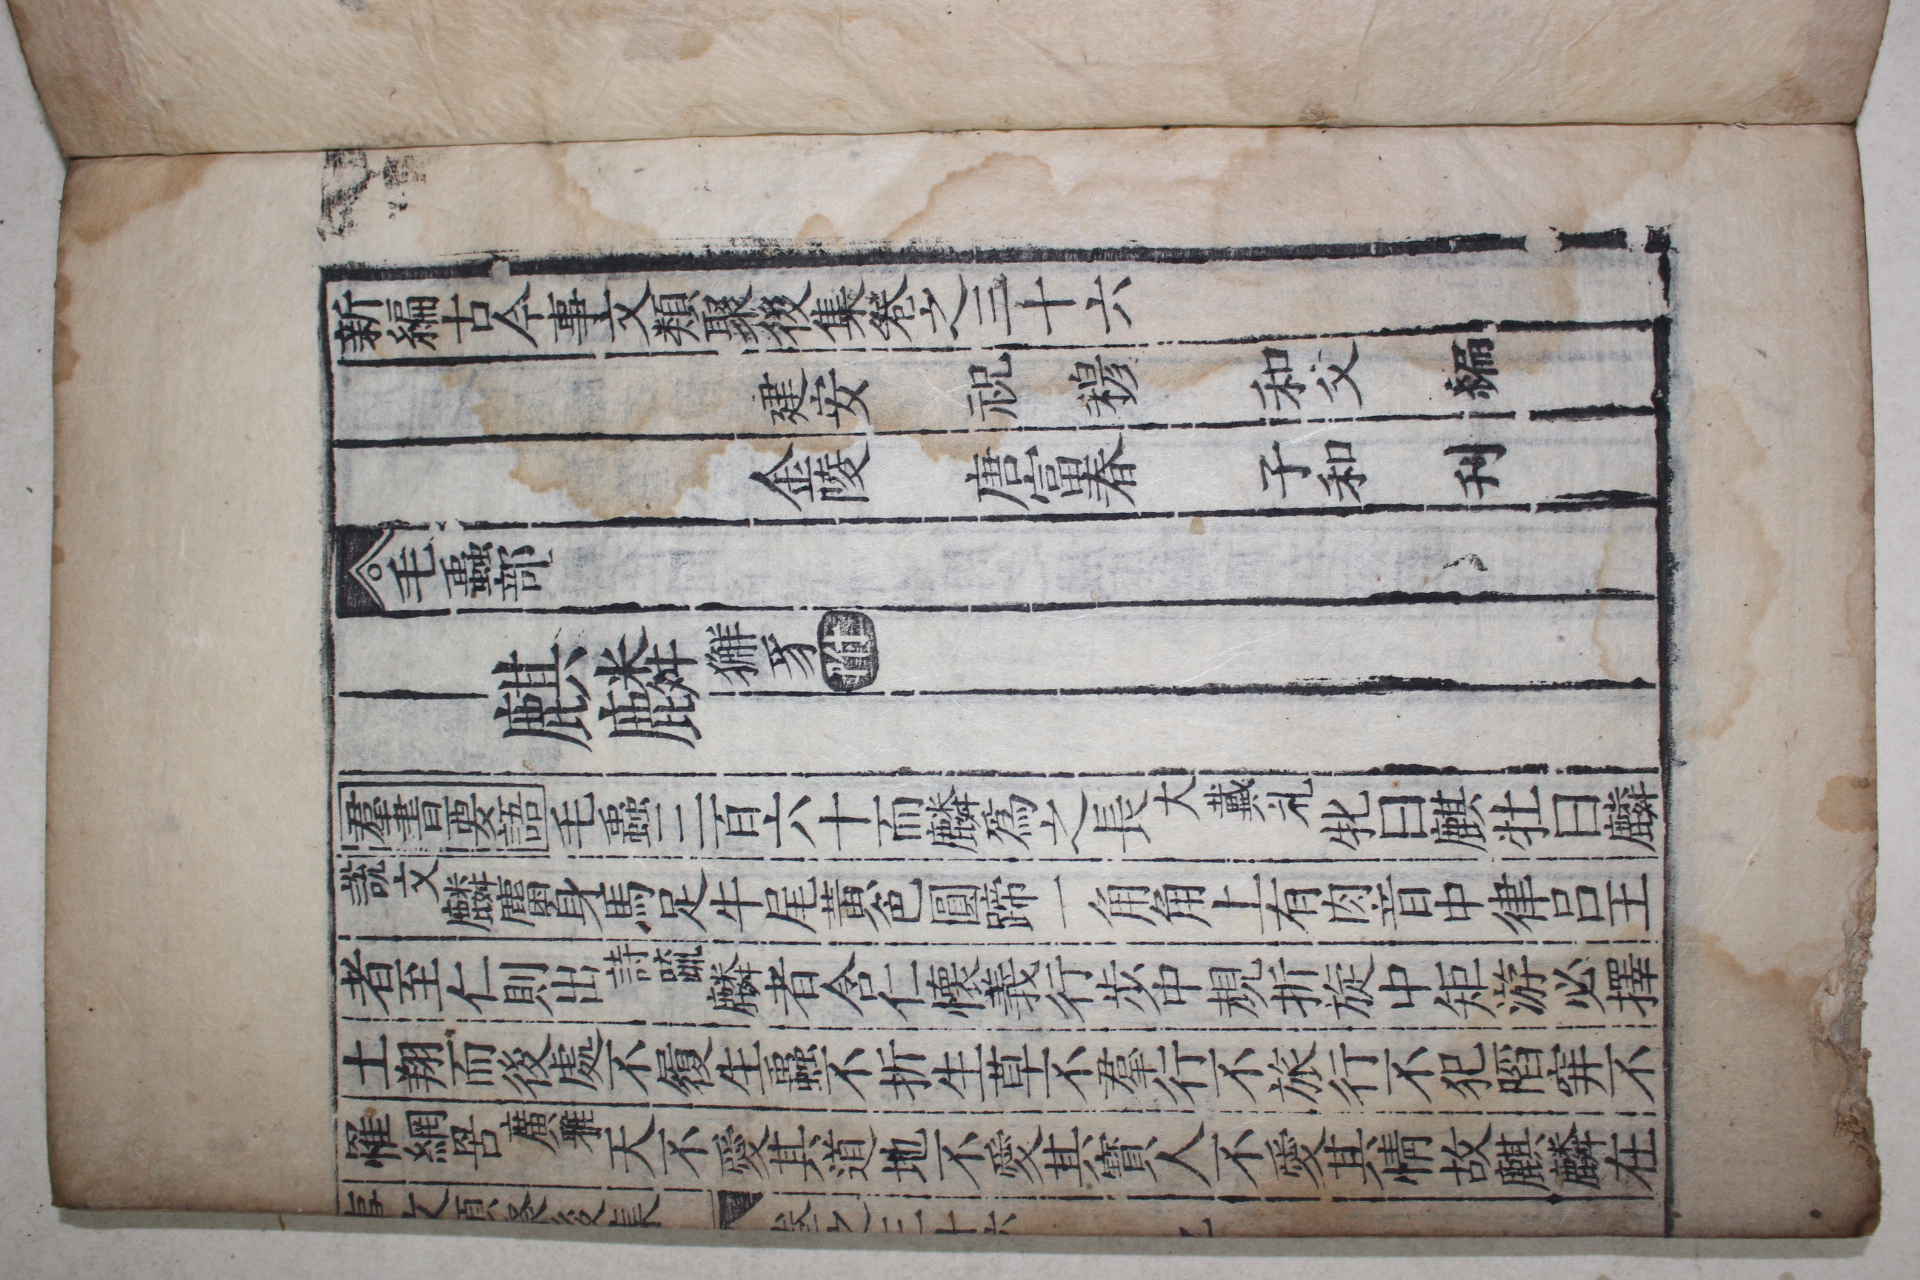 新編古今事文類聚後集卷之三十六
建安 祝穆 和父 編
金陵 唐富春 子和 刊
毛蟲部
麒麟 獬豸 附
羣書要語 毛蟲三百六十而麟爲之長 大戴礼 牝曰麒牡曰麟
說文 麟麕身馬足牛尾黄色圓蹄一角角上有肉音中律呂王
者至仁則出 詩疏 麟者含仁懷義行步中規折旋中矩游必擇
土翔而後處不履生蟲不折生草不羣行不旅行不犯陷穽不
罹網罟 廣雅 天不愛其道地不愛其寶人不愛其情故麒麟在
事文類聚後集 卷之三十六